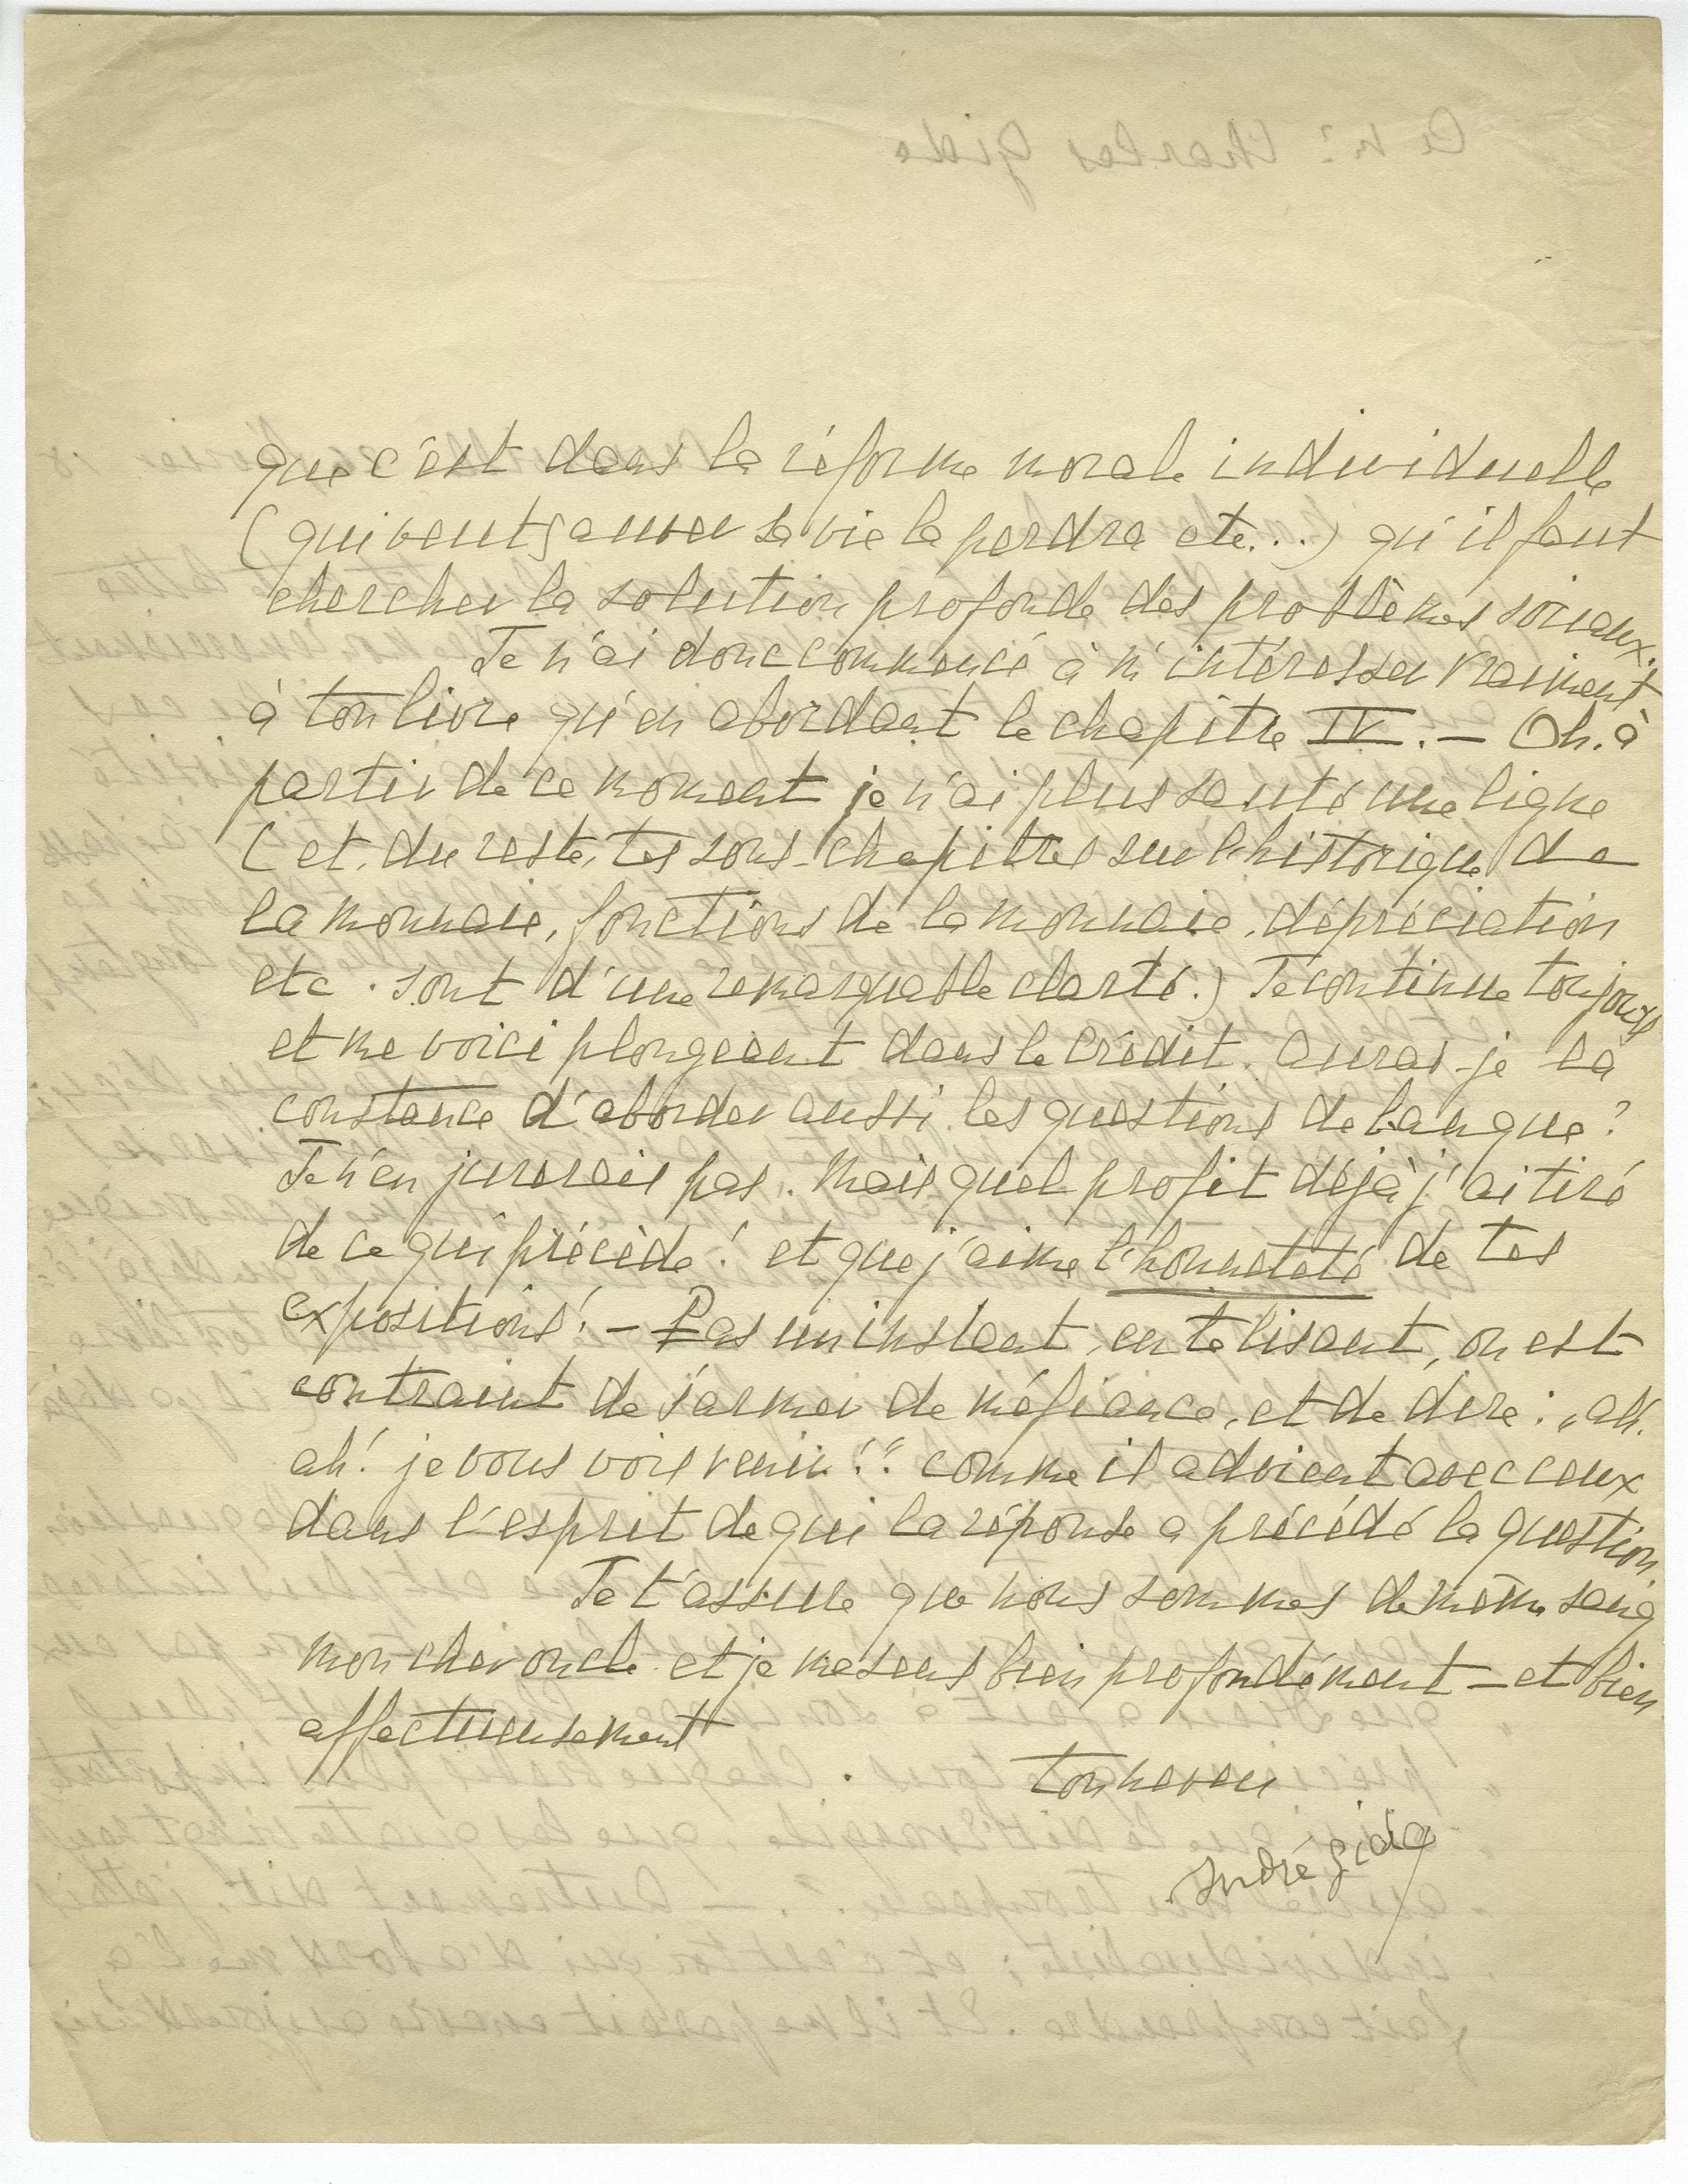 que c'est dans la réforme morale individuelle
(qui veut sauver sa vie la perdra etc...) qu'il faut
chercher la solution profonde des problèmes sociaux.
Je n'ai donc commencé à m'intéresser vraiment
à ton livre qu'en abordant le chapitre IV. — Oh. à
partir de ce moment je n'ai plus sauté une ligne
(et, du reste, tes sous-chapitres sur l'historique de
la monnaie, fonctions de la monnaie, dépréciation
etc. sont d'une remarquable clarté.) Je continue toujours
et me voici plongeant dans le crédit. Aurai-je la
constance d'aborder aussi les questions de banque?
Je n'en jurerais pas. Mais quel profit déjà j'ai tiré
de ce qui précède! et que j'aime l'honneteté de tes
expositions! — Pas un instant, en te lisant, on est
contraint de s'armer de méfiance, et de dire: „ah.
ah! je vous vois venir!" comme il advient avec ceux
dans l'esprit de qui la réponse a précédé la question.
Je t'assure que nous sommes de même sang
mon cher oncle et je me sens bien profondément — et bien
affectueusement
ton neveu
André Gide